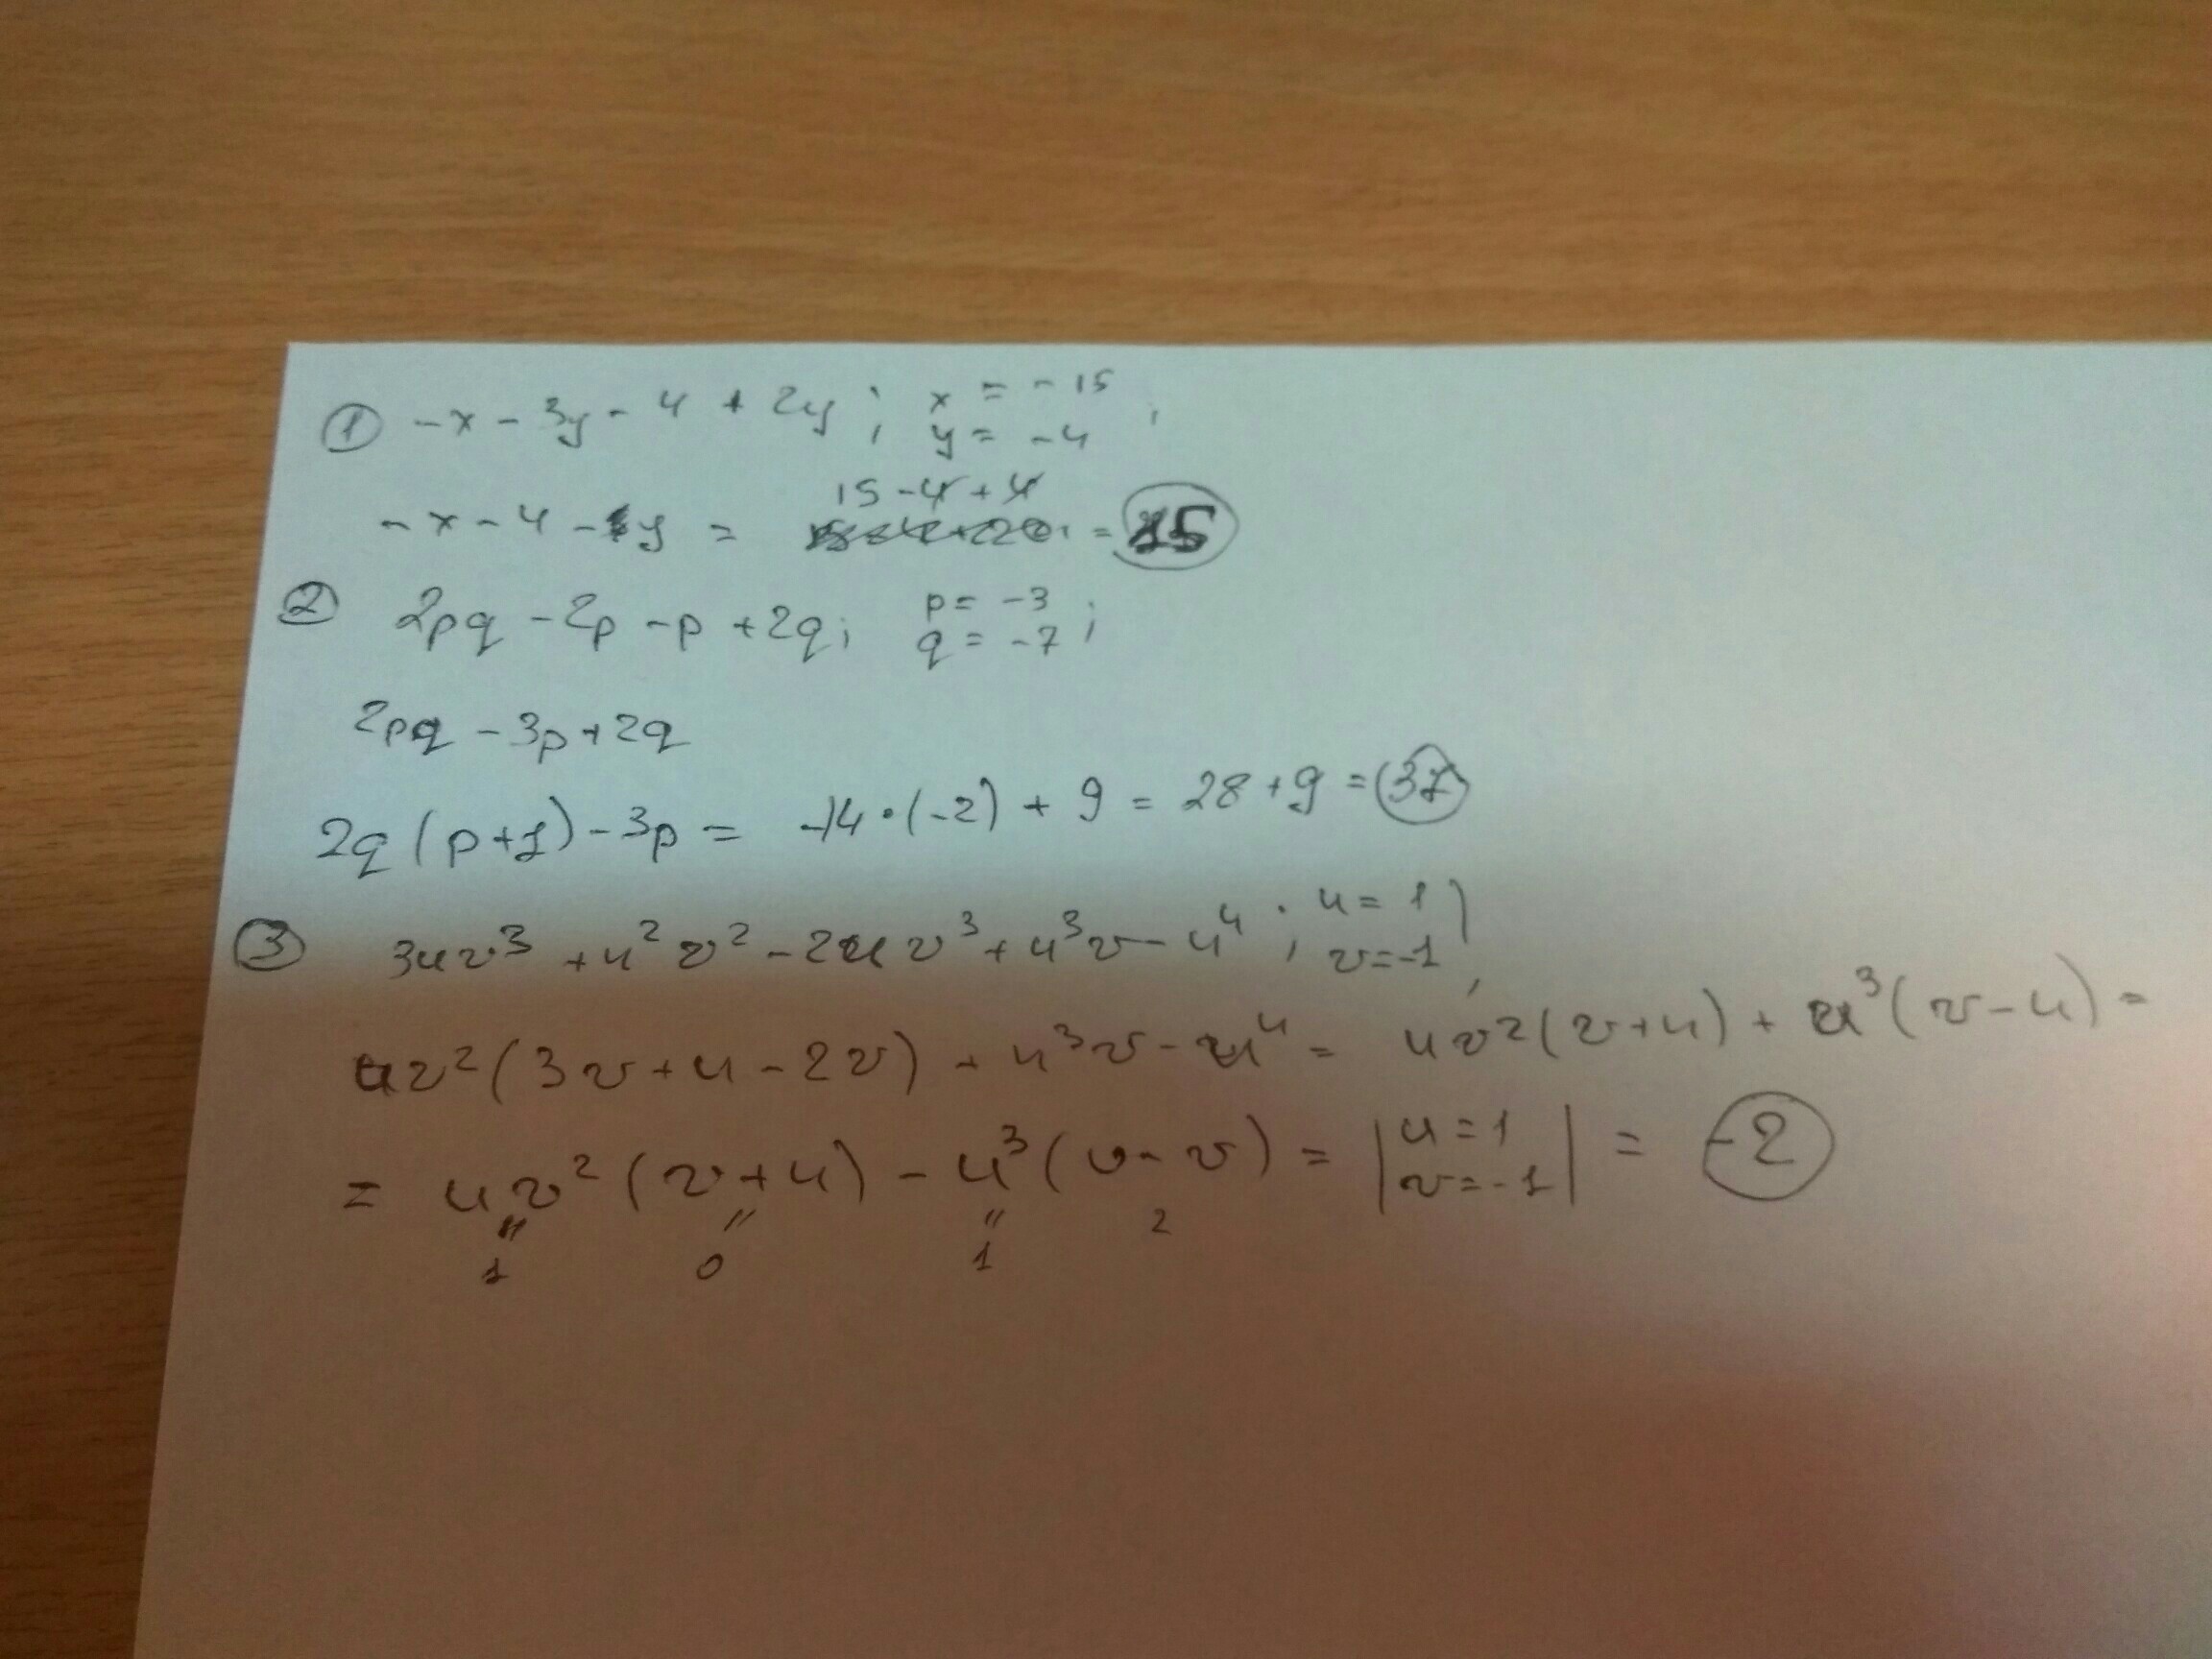 ① -x - 3y - 4 + 2y ; x = -15
y = -4 ;
15 - 4 + 4
-x - 4 - y = = 15
② 2pq - 2p - p + 2q; p = -3
q = -7 ;
2pq - 3p + 2q
2q(p+1) - 3p = -14·(-2) + 9 = 28 + 9 = 37
③ 3uv³ + u²v² - 2uv³ + u³v - u⁴ ; u = 1
v = -1
uv²(3v + u - 2v) + u³v - u⁴ = uv²(v+u) + u³(v-u) =
= uv²(v+u) - u³(u-v) = | u = 1
v = -1 | = -2
" " " 2
1 0 1